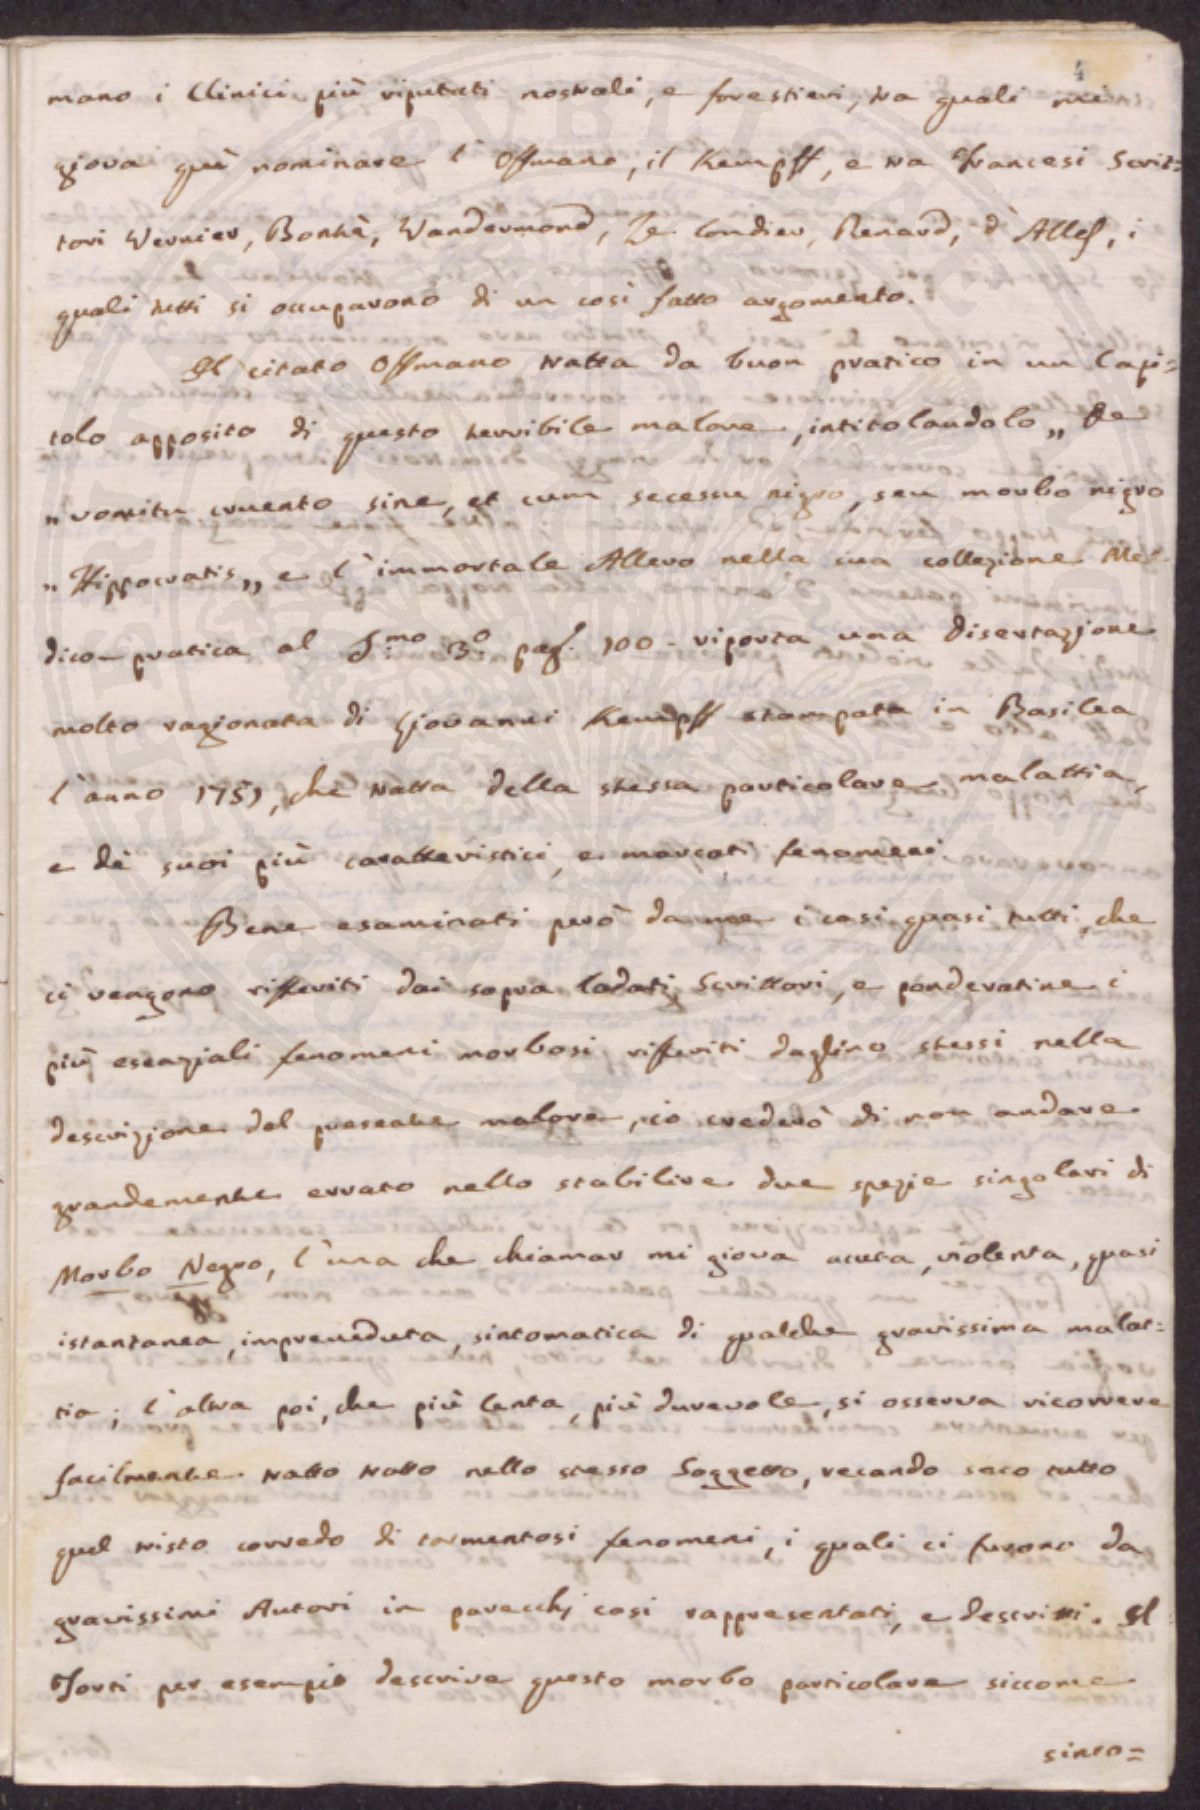 4
mano i Clinici più riputati nostrali, e forestieri, tra quali mi
giova quì nominare l' Offmano, il Kempff, e tra Francesi Scrit=
tori Wernier, Bontè, Wandermond, Le Condier, Renard, d' Alles, i
quali tutti si occuparono di un così fatto argomento.
Il citato Offmano tratta da buon pratico in un Capi=
tolo apposito di questo terribile malore, intitolandolo „ De
„ vomitu cruento sine, et cum secessu nigro, seu morbo nigro
„ Hippocratis„ e l' immortale Allero nella sua collezione Me=
dico-pratica al T.mo 3.o pag. 100 - riporta una disertazione
molto ragionata di Giovanni Kempff stampata in Basilea
l' anno 1751, che tratta della stessa particolare malattia,
e dè suoi più caratteristici, e marcati fenomeni.
Bene esaminati però da me i casi quasi tutti, che
ci vengono rifferiti dai sopra lodati Scrittori, e ponderatine i
più esenziali fenomeni morbosi rifferiti daglino stessi nella
descrizione del presente malore, io crederò di non andare
grandemente errato nello stabilire due spezie singolari di
Morbo Negro, l' una che chiamar mi giova acuta, violenta, quasi
istantanea, impreveduta, sintomatica di qualche gravissima malat=
tia; l' altra poi, che più lenta, più durevole, si osserva ricorrere
facilmente tratto tratto nello stesso Soggetto, recando seco tutto
quel tristo corredo di tormentosi fenomeni, i quali ci furono da
gravissimi Autori in parecchj casi rappresentati, e descritti. Il
Torti per esempio descrive questo morbo particolare siccome
sinto=